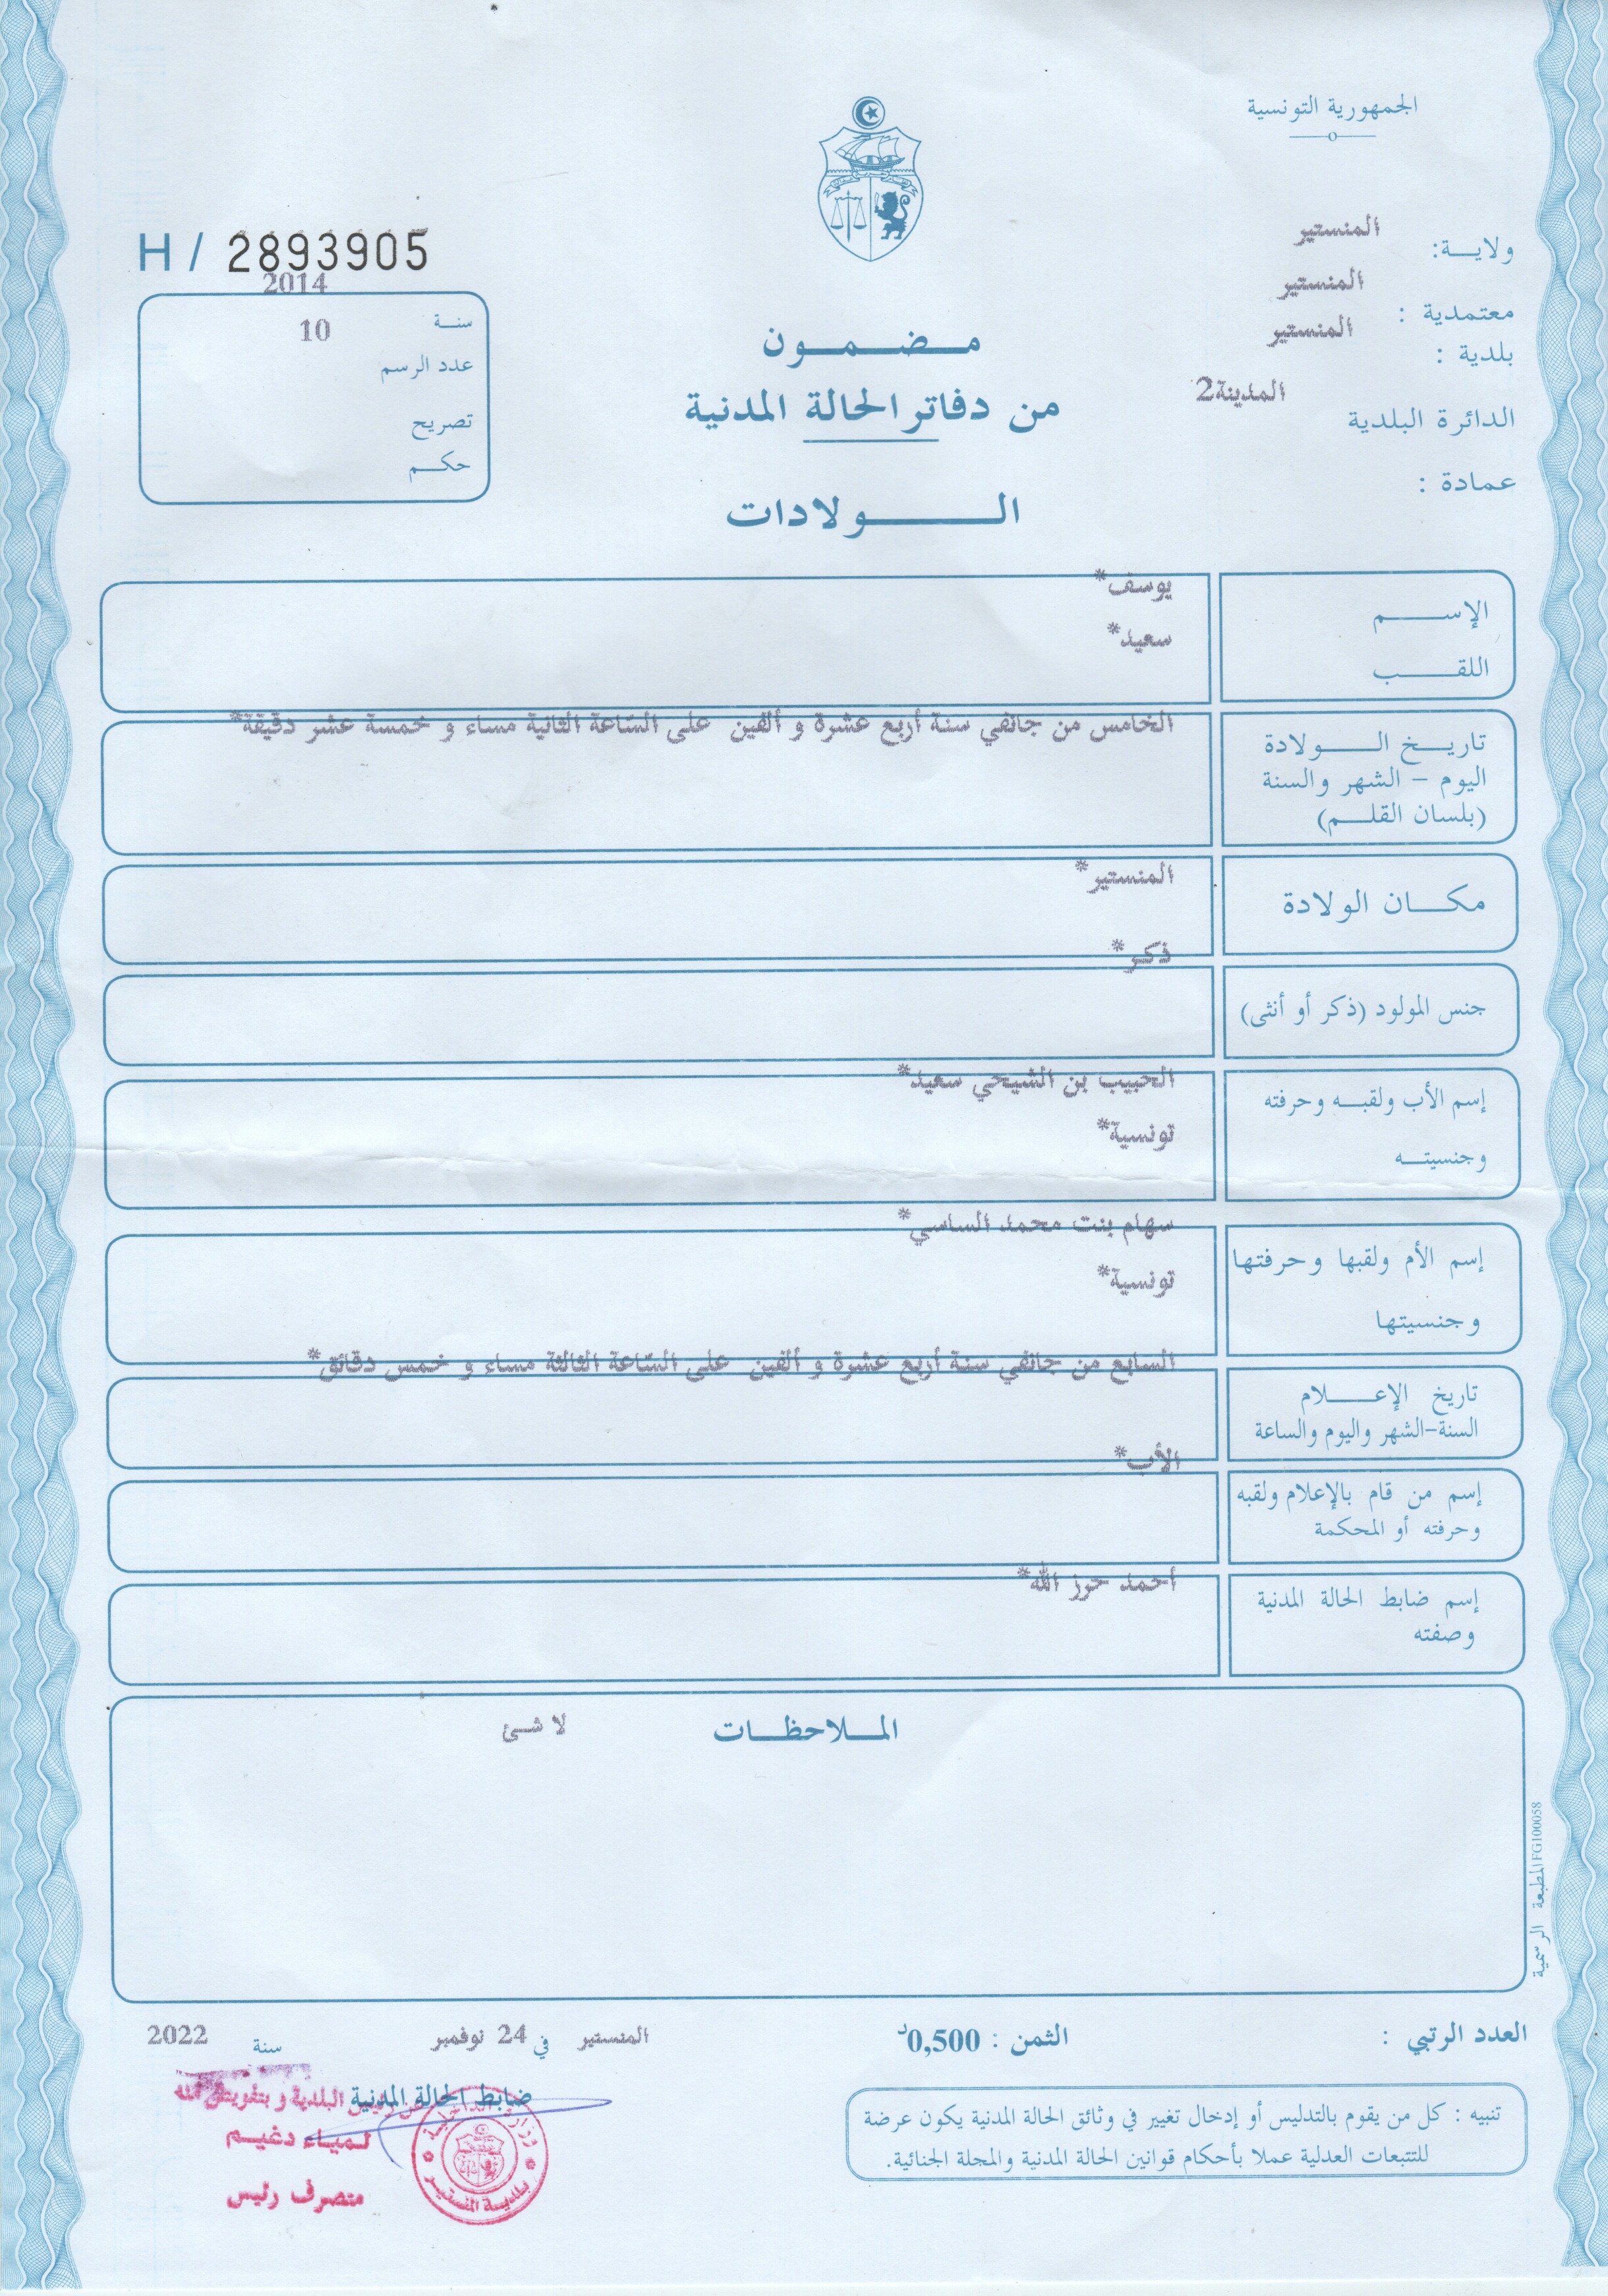 الجمهورية التونسية
ولايـــة: المنستير
معتمدية : المنستير
بلدية : المنستير
الدائرة البلدية المدينة2
عمادة :
H / 2893905
سنـة 2014
عدد الرسم 10
تصريح
حكـــم
مـــضـــمـــون
من دفاتر الحالة المدنية
الـــــــولادات
الإســــــم يوسف*
اللقـــــب سعيد*
تاريـــخ الـــــولادة
اليوم – الشهر والسنة
(بلسان القلــــم)
الخامس من جانفي سنة أربع عشرة و ألفين على الساعة الثانية مساء و خمسة عشر دقيقة*
مكـــان الولادة المنستير*
جنس المولود (ذكر أو أنثى) ذكر*
إسم الأب ولقبــه وحرفته الحبيب بن الشيحي سعيد*
وجنسيتــه تونسية*
إسم الأم ولقبها وحرفتها سهام بنت محمد الساسي*
وجنسيتها تونسية*
تاريخ الإعـــــلام
السنة-الشهر واليوم والساعة
السابع من جانفي سنة أربع عشرة و ألفين على الساعة الثالثة مساء و خمس دقائق*
إسم من قام بالإعلام ولقبه
وحرفته أو المحكمة
الأب*
إسم ضابط الحالة المدنية
وصفته
أحمد حرز الله*
المــلاحظــات لا شئ
المطبعة الرسمية FG100058
العدد الرتبي :
الثمن : 0,500د
المنستير في 24 نوفمبر سنة 2022
ضابط الحالة المدنية
رئيس البلدية و بتفويض منه
لمياء دغيم
متصرف رئيس
بلدية المنستير
تنبيه : كل من يقوم بالتدليس أو إدخال تغيير في وثائق الحالة المدنية يكون عرضة
للتتبعات العدلية عملا بأحكام قوانين الحالة المدنية والمجلة الجنائية.